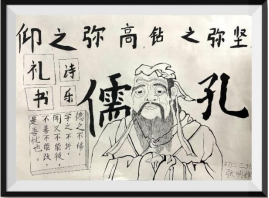 仰之弥高钻之弥坚
礼
诗
书
乐
儒
孔
德之不修
学之不讲
闻义不能徙
不善不能改
是吾忧也